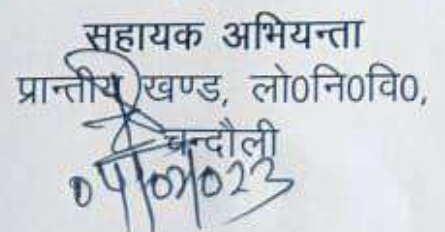 सहायक अभियन्ता
प्रान्तीय खण्ड, लो0नि0वि0,
चन्दौली
04/02/023